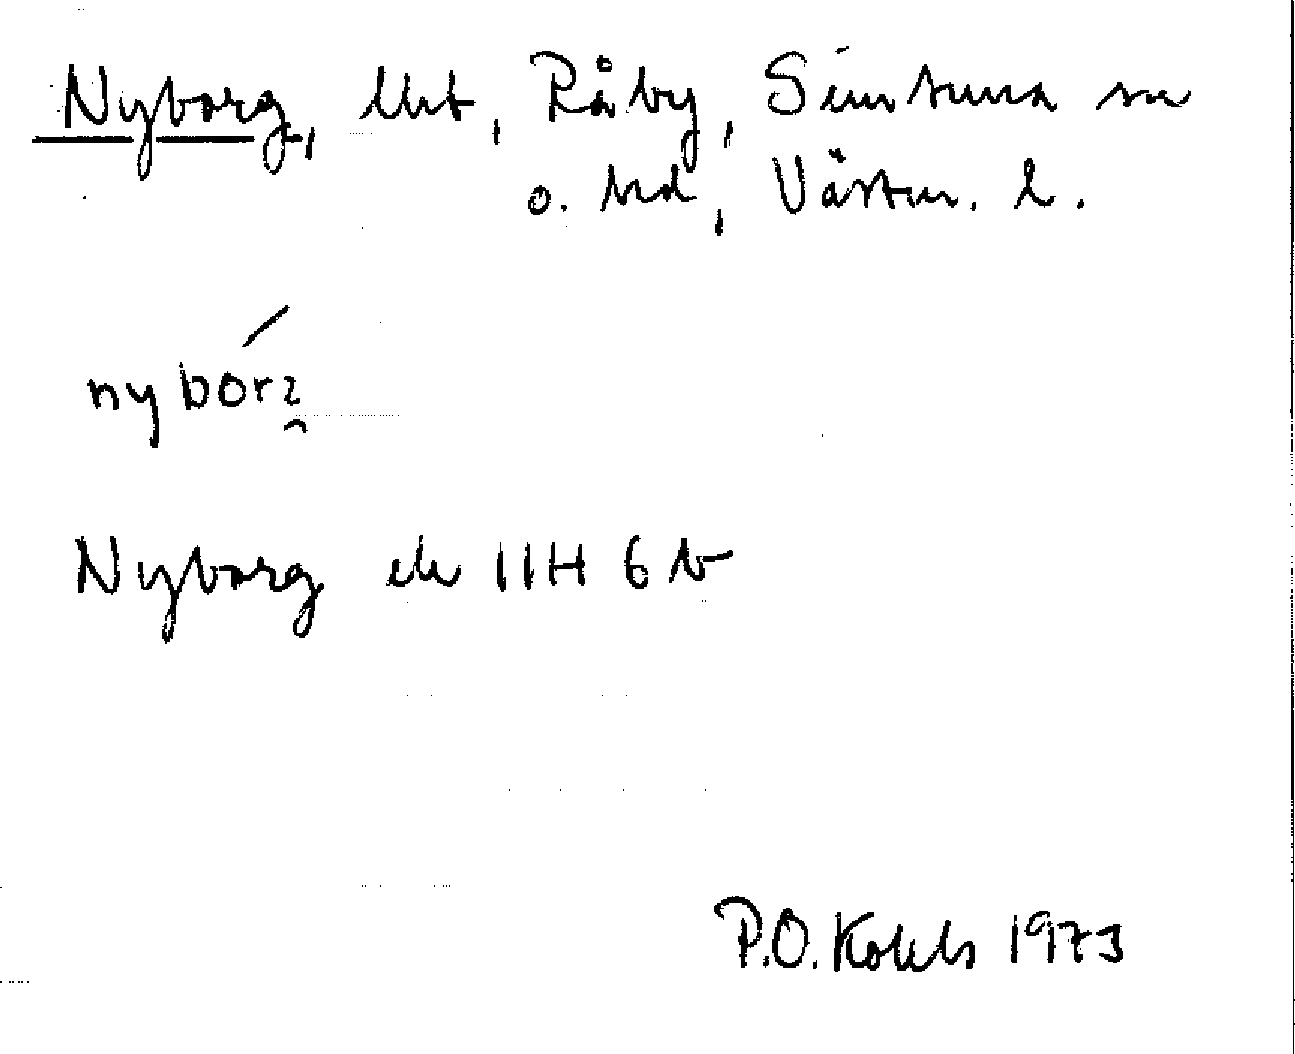 Nyborg, lht, Råby, Simtuna sn
o. hd, Västm. l.
nybórʒ
Nyborg ek 11H 6b
P.O. 1973